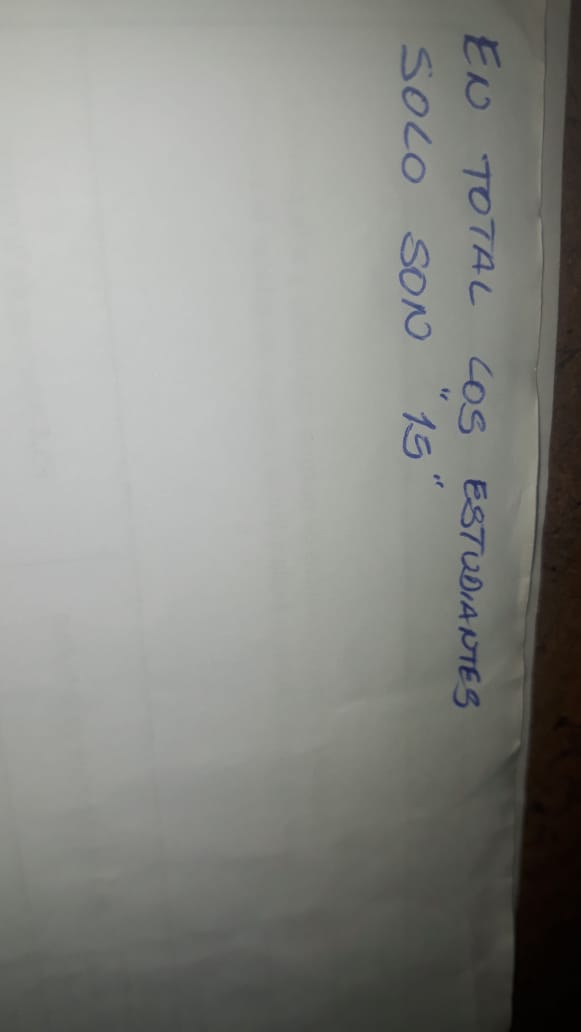 EN TOTAL LOS ESTUDIANTES
SOLO SON "15"